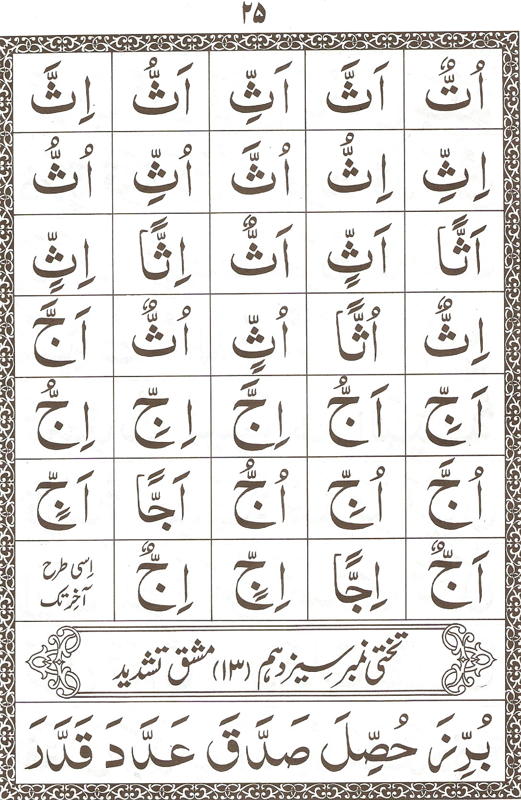 ۲۵
اُتٌّ اَثَّ اَثِّ اَثُّ اِثَّ
اِثِّ اِثُّ اُثَّ اُثِّ اُثُّ
اَثًّا اَثٍّ اَثٌّ اِثًّا اِثٍّ
اِثٌّ اُثًّا اُثٍّ اُثٌّ اَجَّ
اَجِّ اَجُّ اِجَّ اِجِّ اِجُّ
اُجَّ اُجِّ اُجُّ اَجًّا اَجٍّ
اَجٌّ اِجًّا اِجٍّ اِجٌّ اِسی طرح
آخر تک
تختی نمبر سیزدہم (۱۳) مشق تشدید
بُرِّزَ حُصِّلَ صَدَّقَ عَدَّدَ قَدَّرَ